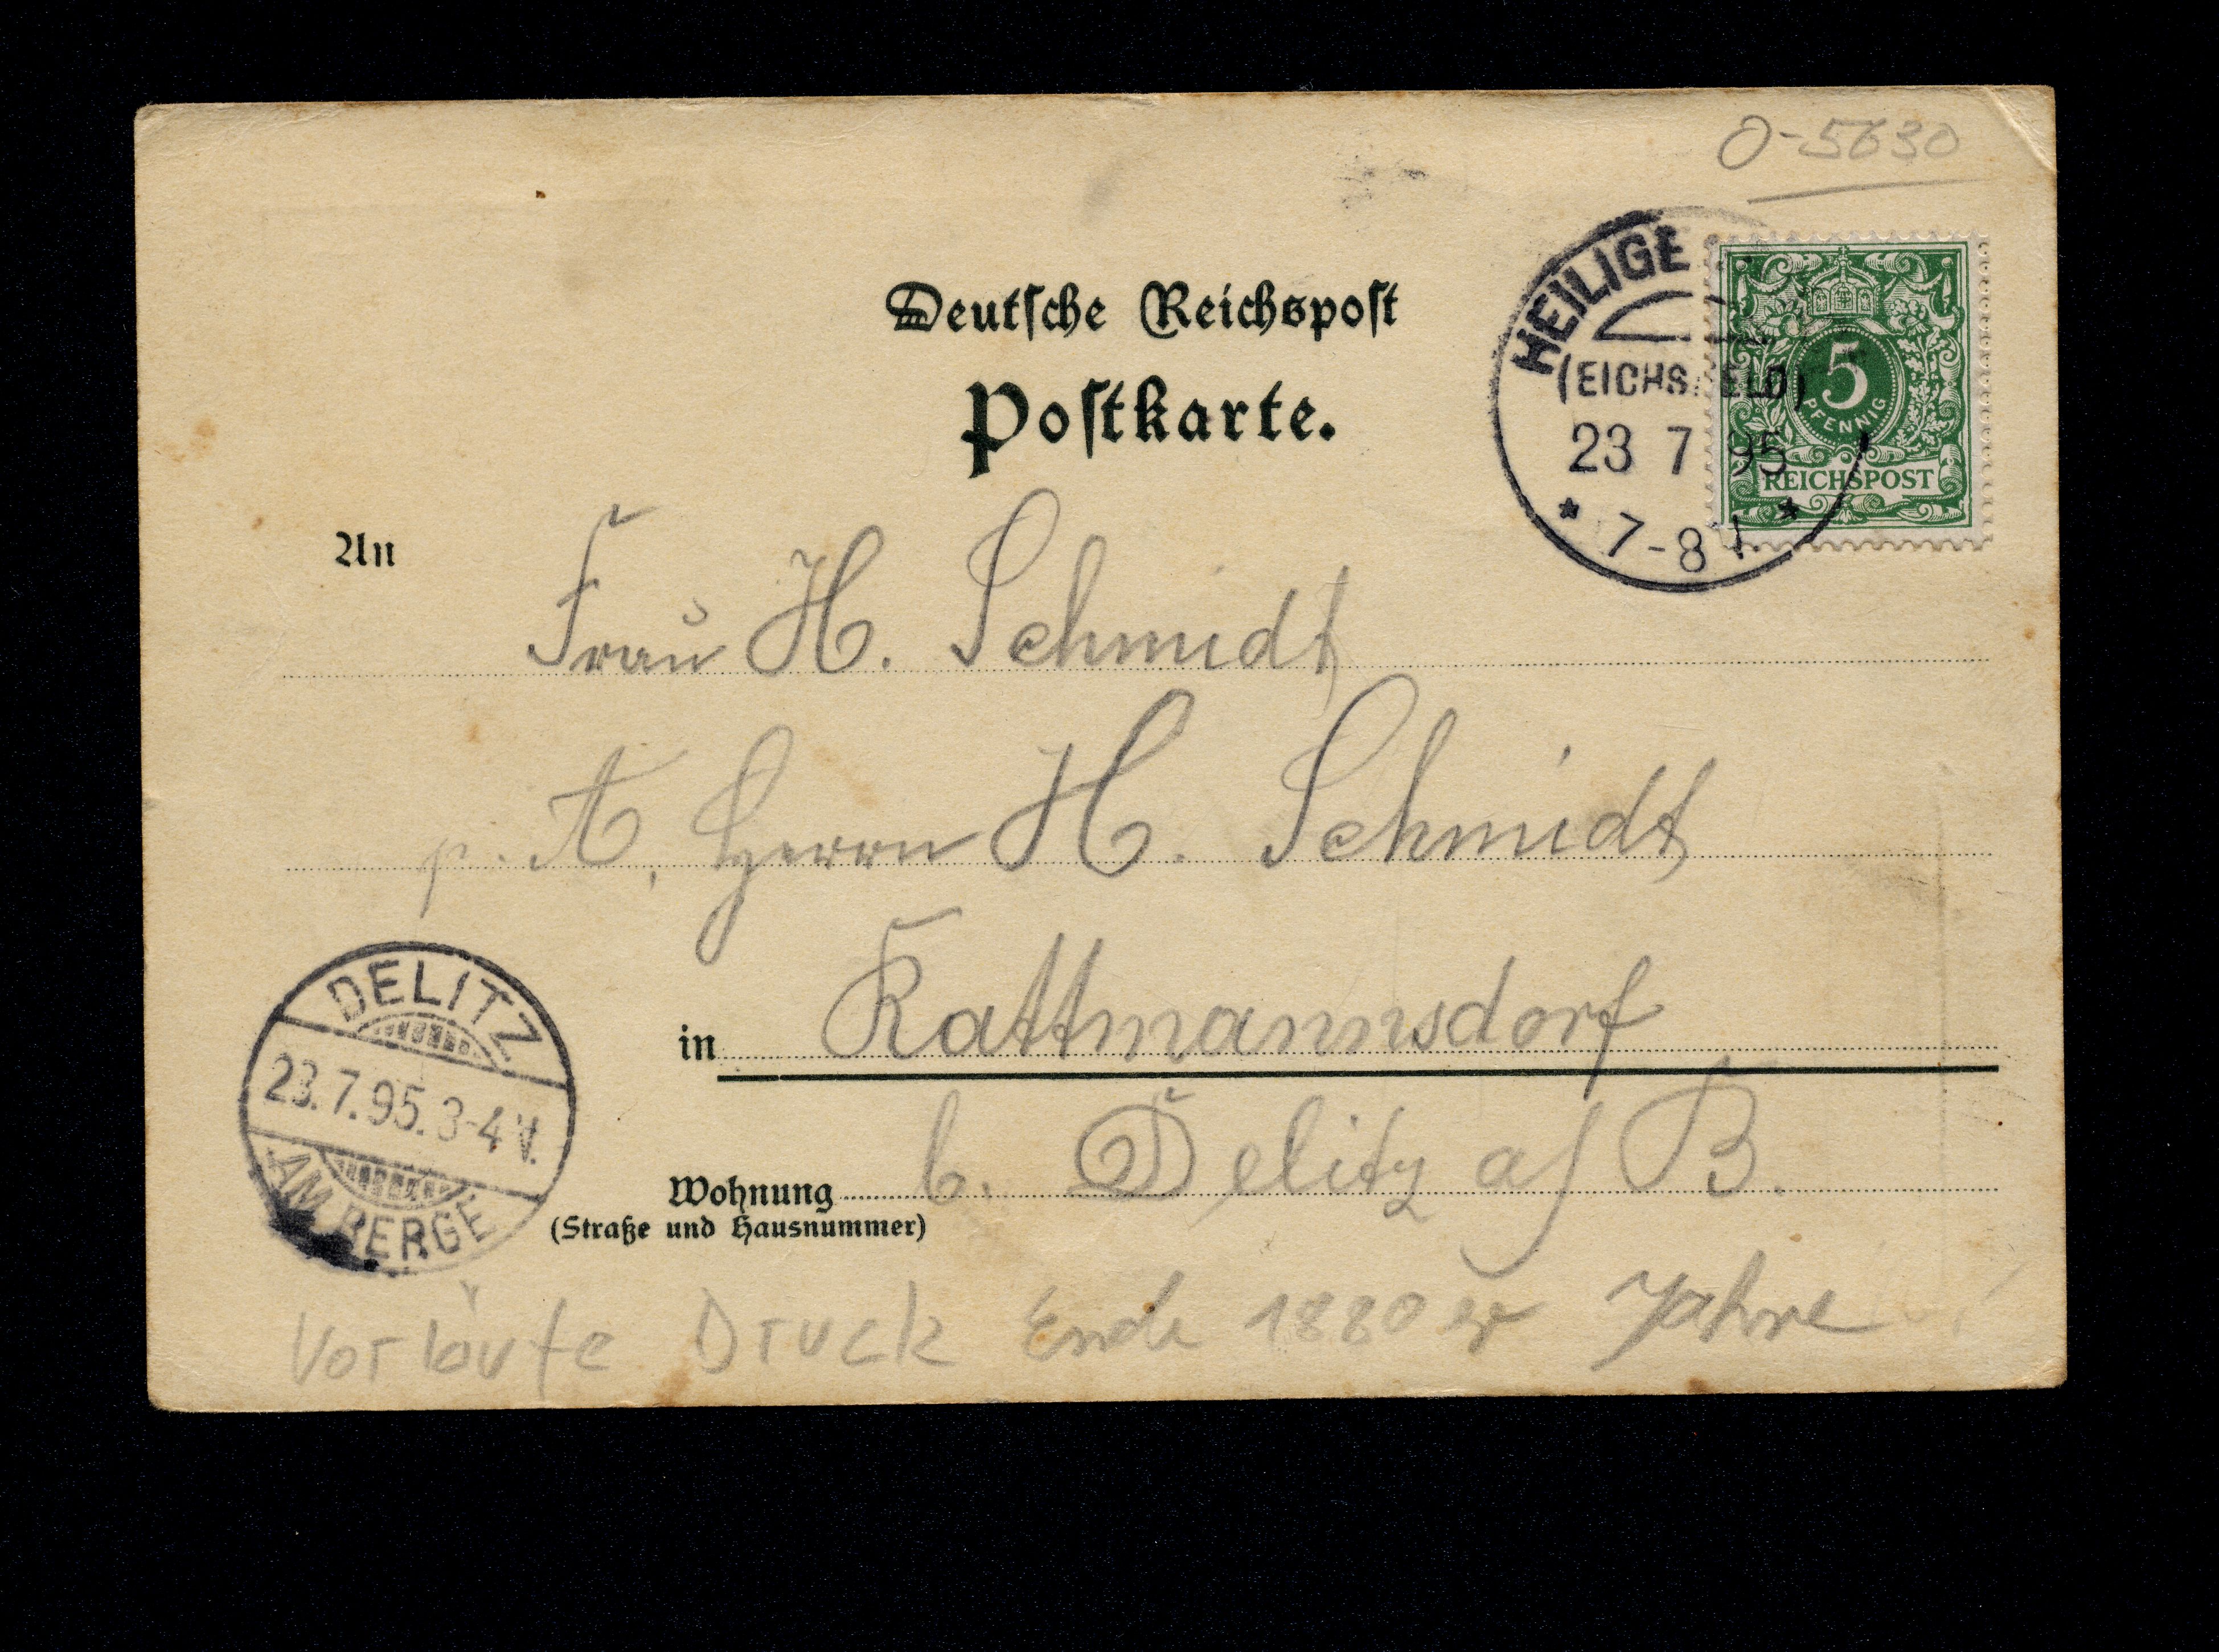 O-5630
Deutsche Reichspost
Postkarte.
HEILIGE
(EICHSFELD)
23 7 95
* 7-8 *
5
PFENNIG
REICHSPOST
An
Frau H. Schmidt
p. A, Herrn H. Schmidt
in Rattmannsdorf
b. Delitz a/B.
Wohnung
(Straße und Hausnummer)
DELITZ
23.7.95.3-4 V.
AM BERGE
Vorläufe Druck Ende 1880er Jahre